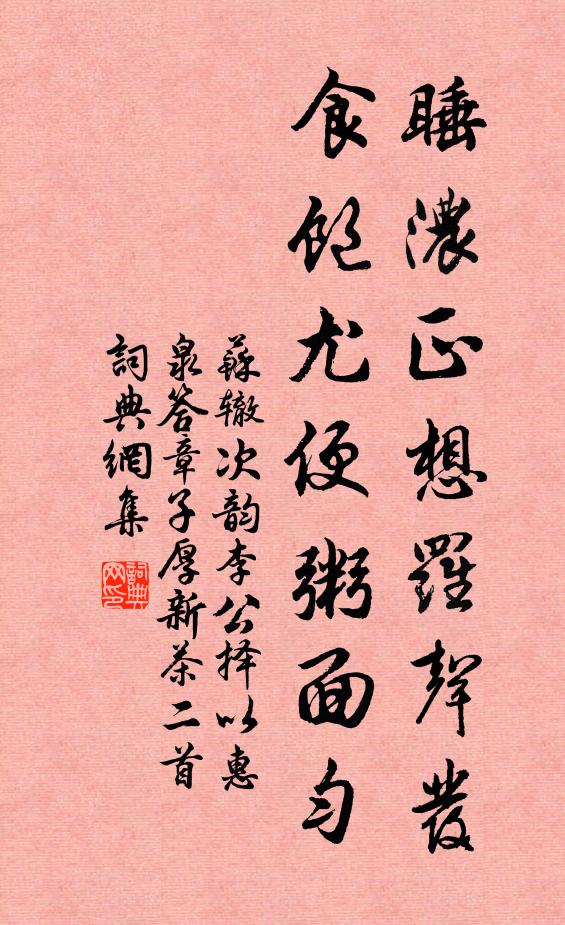 睡濃正想羅聲發
食飽尤便粥面勻
蘇辙次韵李公择以惠
泉答章子厚新茶二首
詞典網集
詞典网印